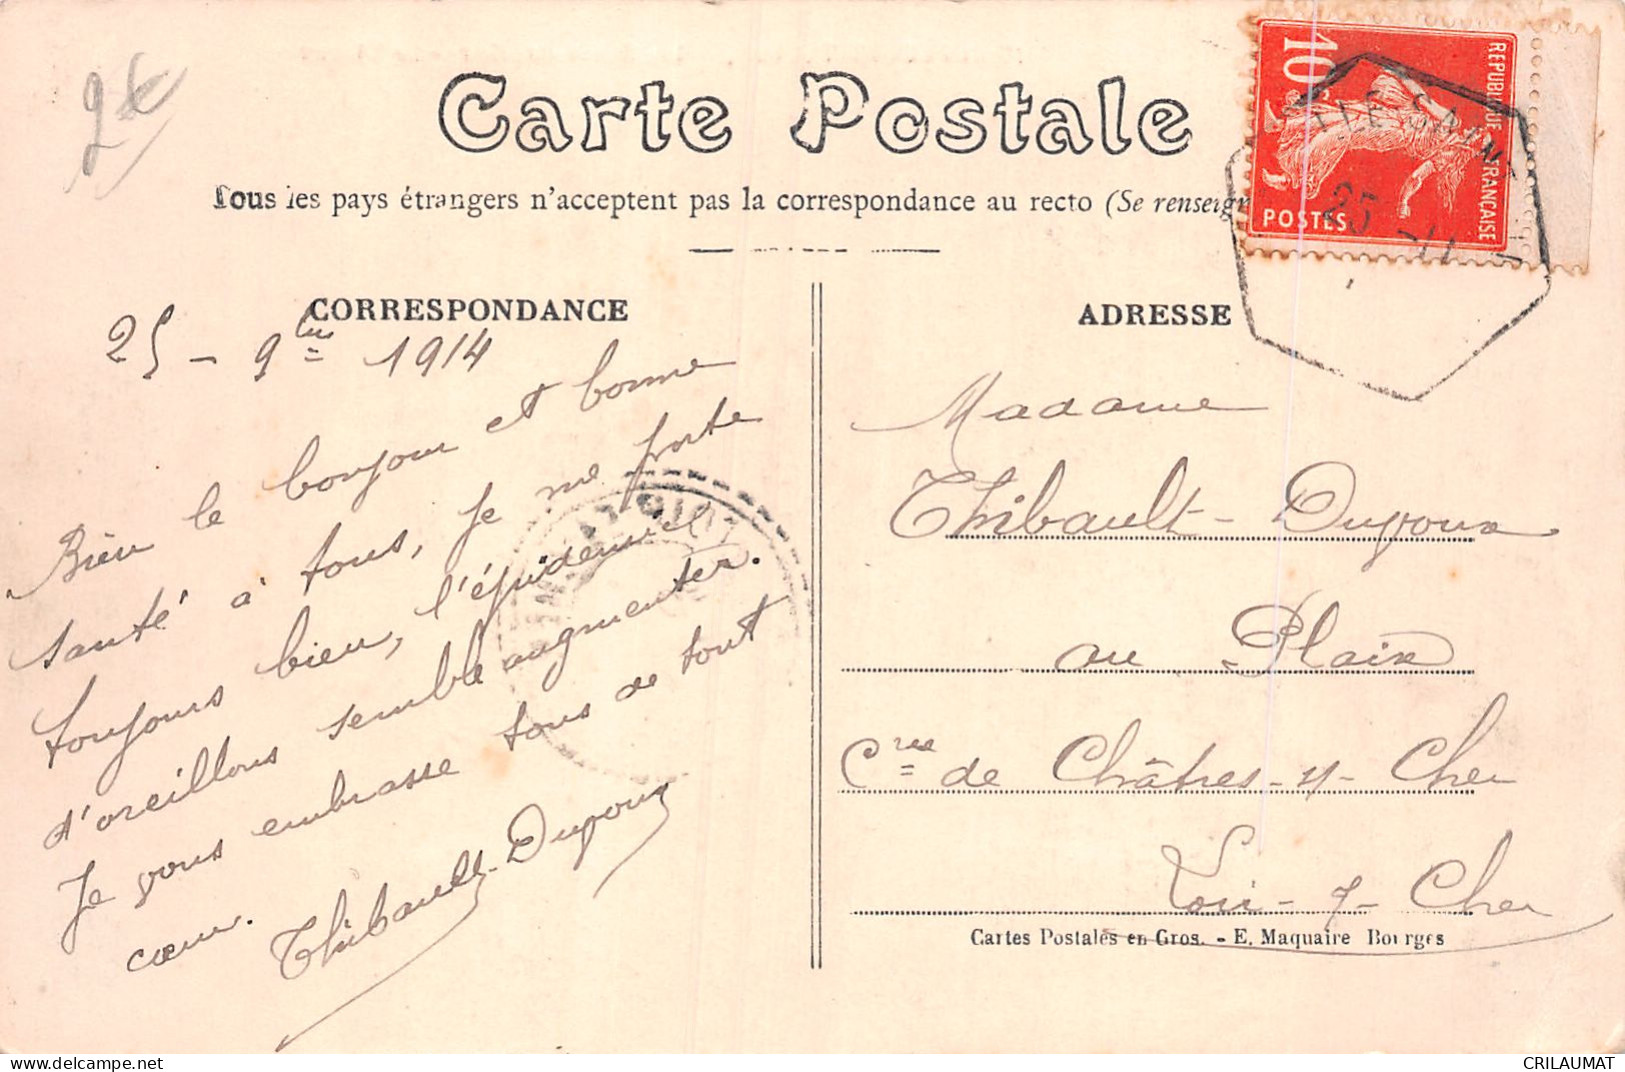 2€
Carte Postale
Tous les pays étrangers n'acceptent pas la correspondance au recto (Se renseign
10
REPUBLIQUE FRANÇAISE
POSTES
25 -11
CORRESPONDANCE
ADRESSE
25 - 9bre 1914
Bien le bonjour et bonne
santé à tous, je me porte
toujours bien, l'épidémie
d'oreillons semble augmenter.
Je vous embrasse tous de tout
cœur.
Thibault-Dupoux
Madame
Thibault-Dupoux
au Plaix
Cne de Châtres-s/-Cher
Loir-&-Cher
Cartes Postales en Gros. - E. Maquaire Bourges
CRILAUMAT
delcampe.net